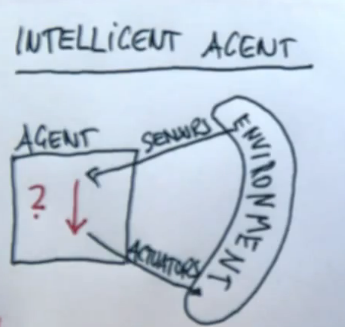 INTELLIGENT AGENT
AGENT
SENSORS
ENVIRONMENT
?
ACTUATORS